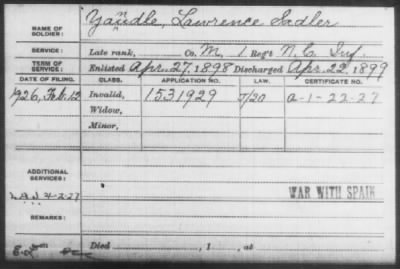 NAME OF SOLDIER: Yandle, Lawrence Sadler
SERVICE: Late rank, Co. M, 1 Reg't N.C. Inf.
TERM OF SERVICE: Enlisted Apr. 27. 1898 Discharged Apr. 22. 1899
DATE OF FILING. CLASS. APPLICATION NO. LAW. CERTIFICATE NO.
1926, Feb. 12 Invalid, 1531929 J/20 A-1-22-27
Widow,
Minor,
ADDITIONAL SERVICES:
4-2-27 WAR WITH SPAIN
REMARKS:
Died , 1 , at